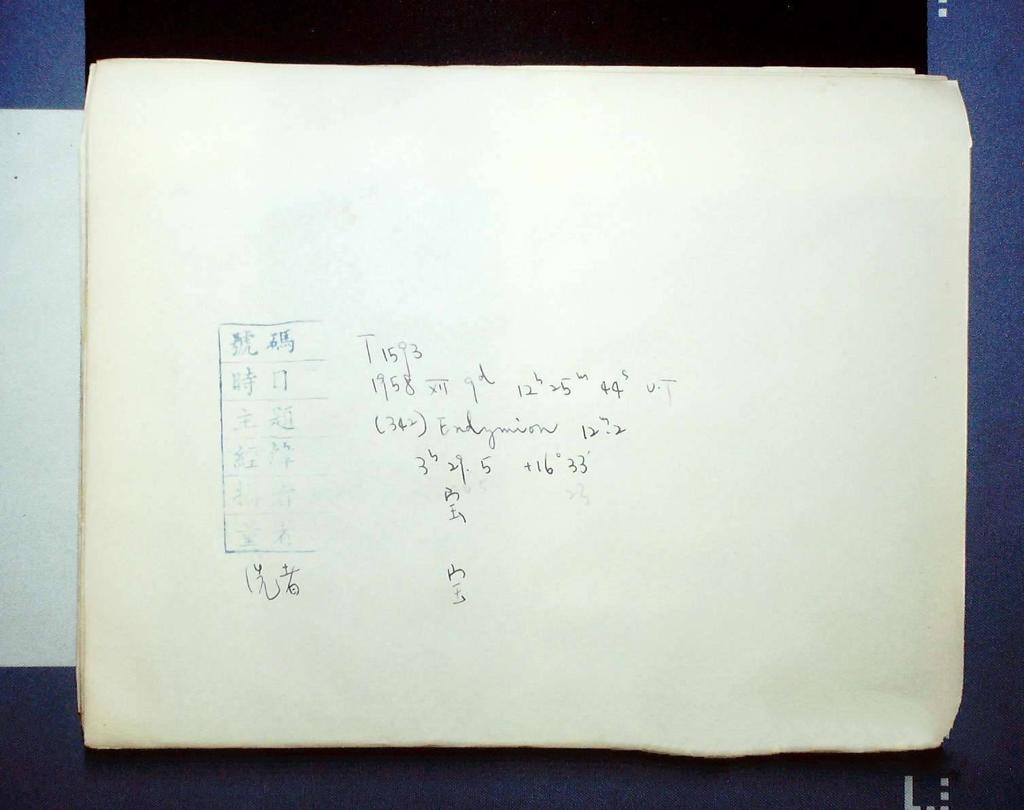 號碼 T 1593
時日 1958 XII 9ᵈ 12ʰ 25ᵐ 44ˢ U.T
主題 (342) Endymion 12ᵐ.2
經緯 3ʰ 29.5 +16°33′
攝者
量者
洗者